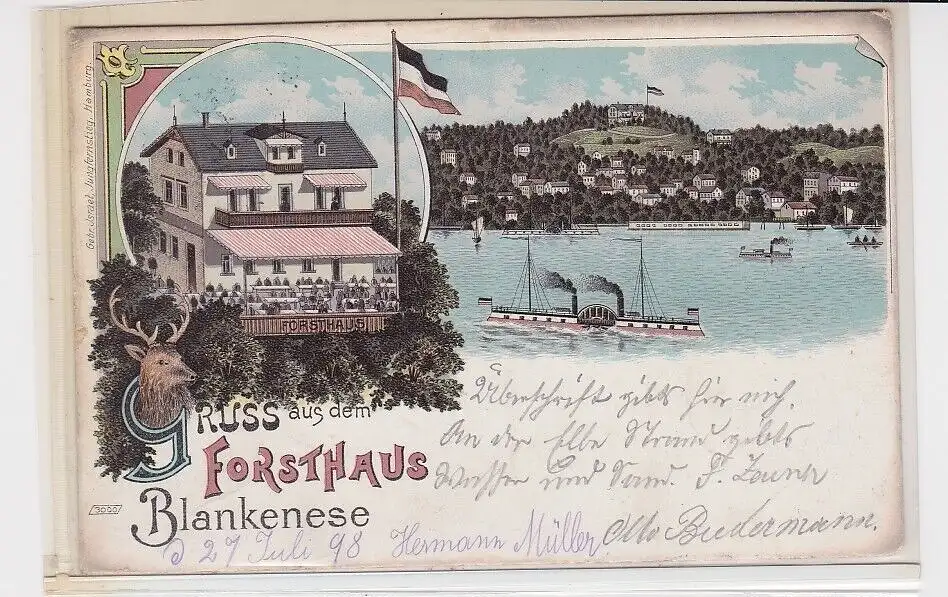 Gebr. Israel, Jungfernstieg, Hamburg.
FORSTHAUS
GRUSS aus dem
FORSTHAUS
Blankenese
3000
Überschrift gibts hier nich.
An der Elbe Strand gebts
Wasser und Sand. F.
Otto Biedermann.
d 27 Juli 98 Hermann Müller